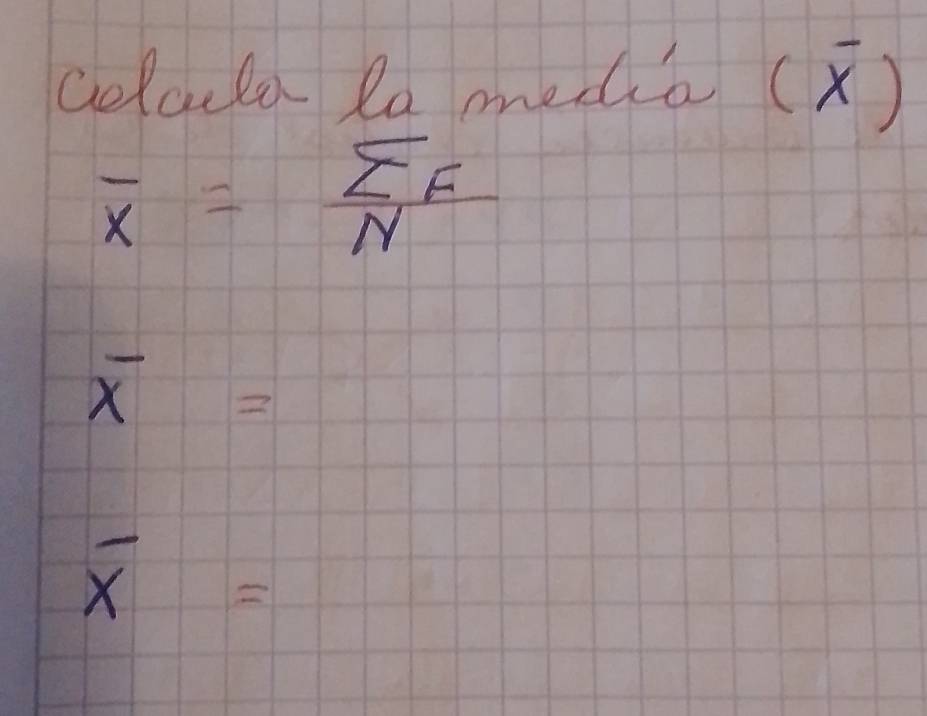 Calcula la media (x̄)
x̄ = ΣF / N
x̄ =
x̄ =